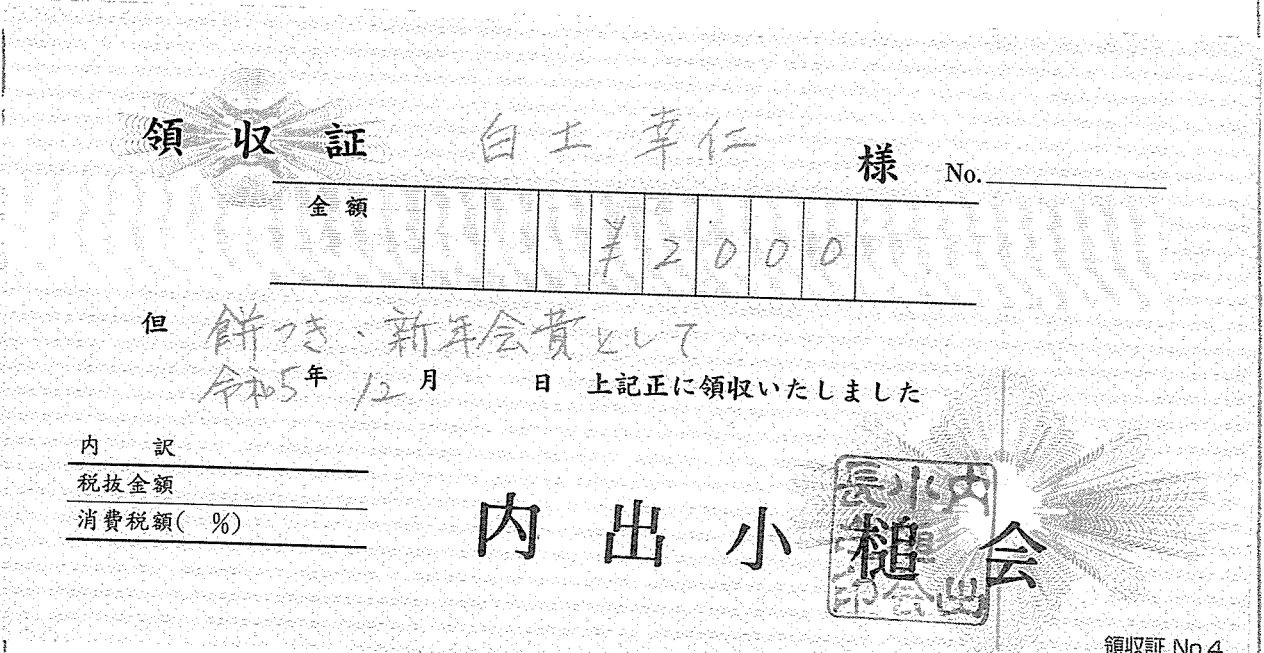 領収証 白土幸仁 様 No.
金額 ¥2000
但 餅つき・新年会費として
令和5年 12月 日 上記正に領収いたしました
内訳
税抜金額
消費税額( %)
内出小槌会
領収証 No.4